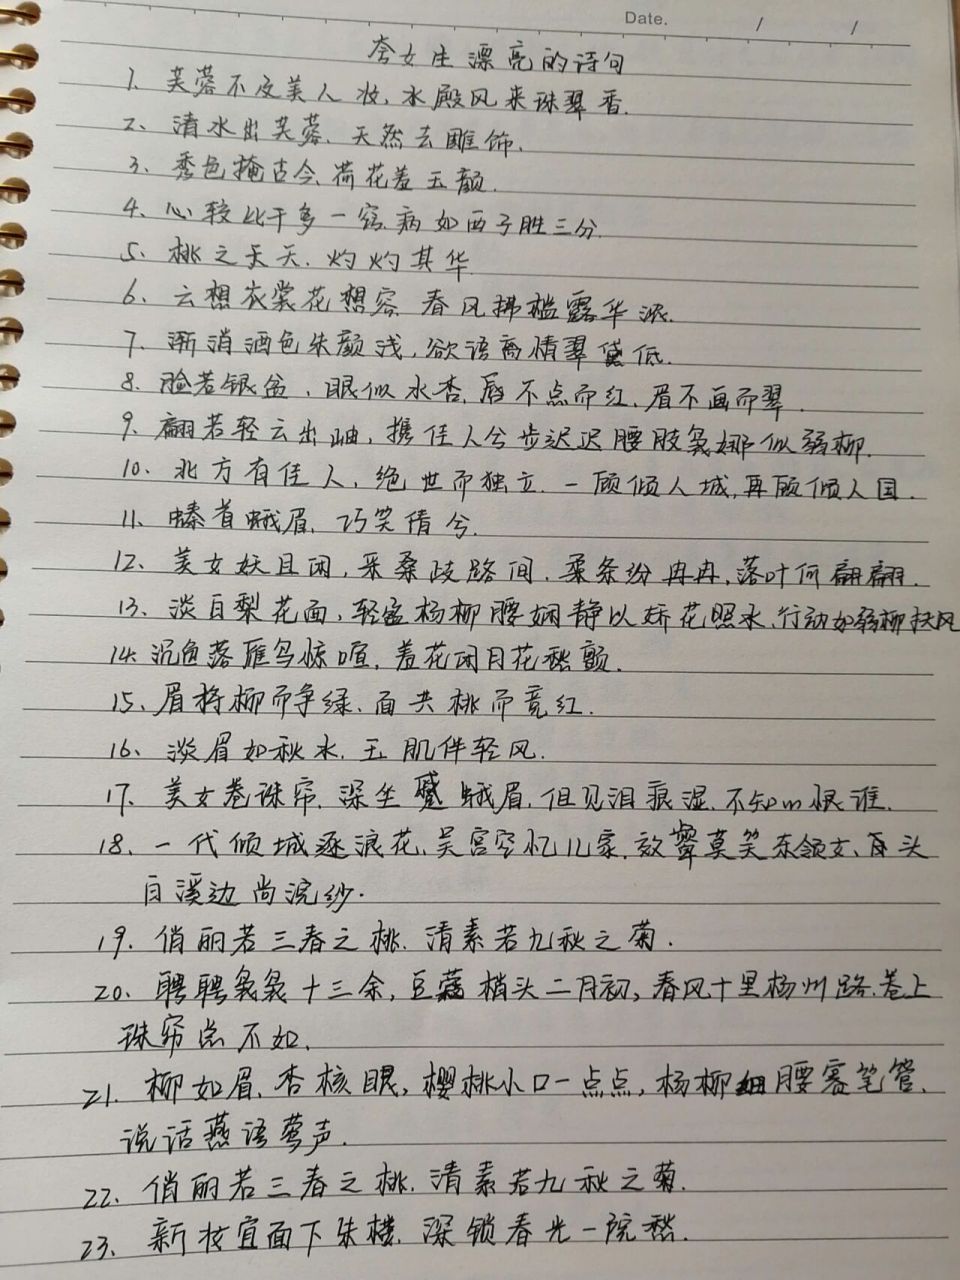 Date. / /
夸女生漂亮的诗句
1、芙蓉不及美人妆、水殿风来珠翠香.
2、清水出芙蓉、天然去雕饰.
3、秀色掩古今、荷花羞玉颜.
4、心较比干多一窍、病如西子胜三分.
5、桃之夭夭、灼灼其华.
6、云想衣裳花想容、春风拂槛露华浓.
7、渐消酒色朱颜浅,欲语离情翠黛低.
8、脸若银盆、眼似水杏、唇不点而红、眉不画而翠.
9、翩若轻云出岫,携佳人兮步迟迟腰肢袅娜似弱柳.
10、北方有佳人、绝世而独立.一顾倾人城,再顾倾人国.
11、螓首蛾眉、巧笑倩兮.
12、美女妖且闲,采桑歧路间.柔条纷冉冉,落叶何翩翩.
13、淡白梨花面,轻盈杨柳腰娴静以娇花照水、行动如弱柳扶风
14、沉鱼落雁鸟惊喧,羞花闭月花愁颤.
15、眉将柳而争绿、面共桃而竞红.
16、淡眉如秋水、玉肌伴轻风.
17、美女卷珠帘、深坐蹙蛾眉,但见泪痕湿、不知心恨谁.
18、一代倾城逐浪花、吴宫空忆儿家.效颦莫笑东领女、白头
白溪边尚浣纱.
19、俏丽若三春之桃、清素若九秋之菊.
20、聘聘袅袅十三余,豆蔻梢头二月初,春风十里杨州路、卷上
珠帘总不如.
21、柳如眉、杏核眼,樱桃小口一点点,杨柳细腰赛笔管、
说话燕语莺声.
22、俏丽若三春之桃、清素若九秋之菊.
23、新妆宜面下朱楼、深锁春光一院愁.